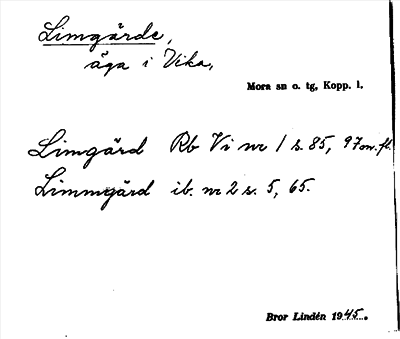 Limgärde,
äga i Vika,
Mora sn o. tg, Kopp. l.
Limgärd Rb Vi nr 1 s. 85, 97 m. fl.
Limmgärd ib. nr 2 s. 5, 65.
Bror Lindén 1945.